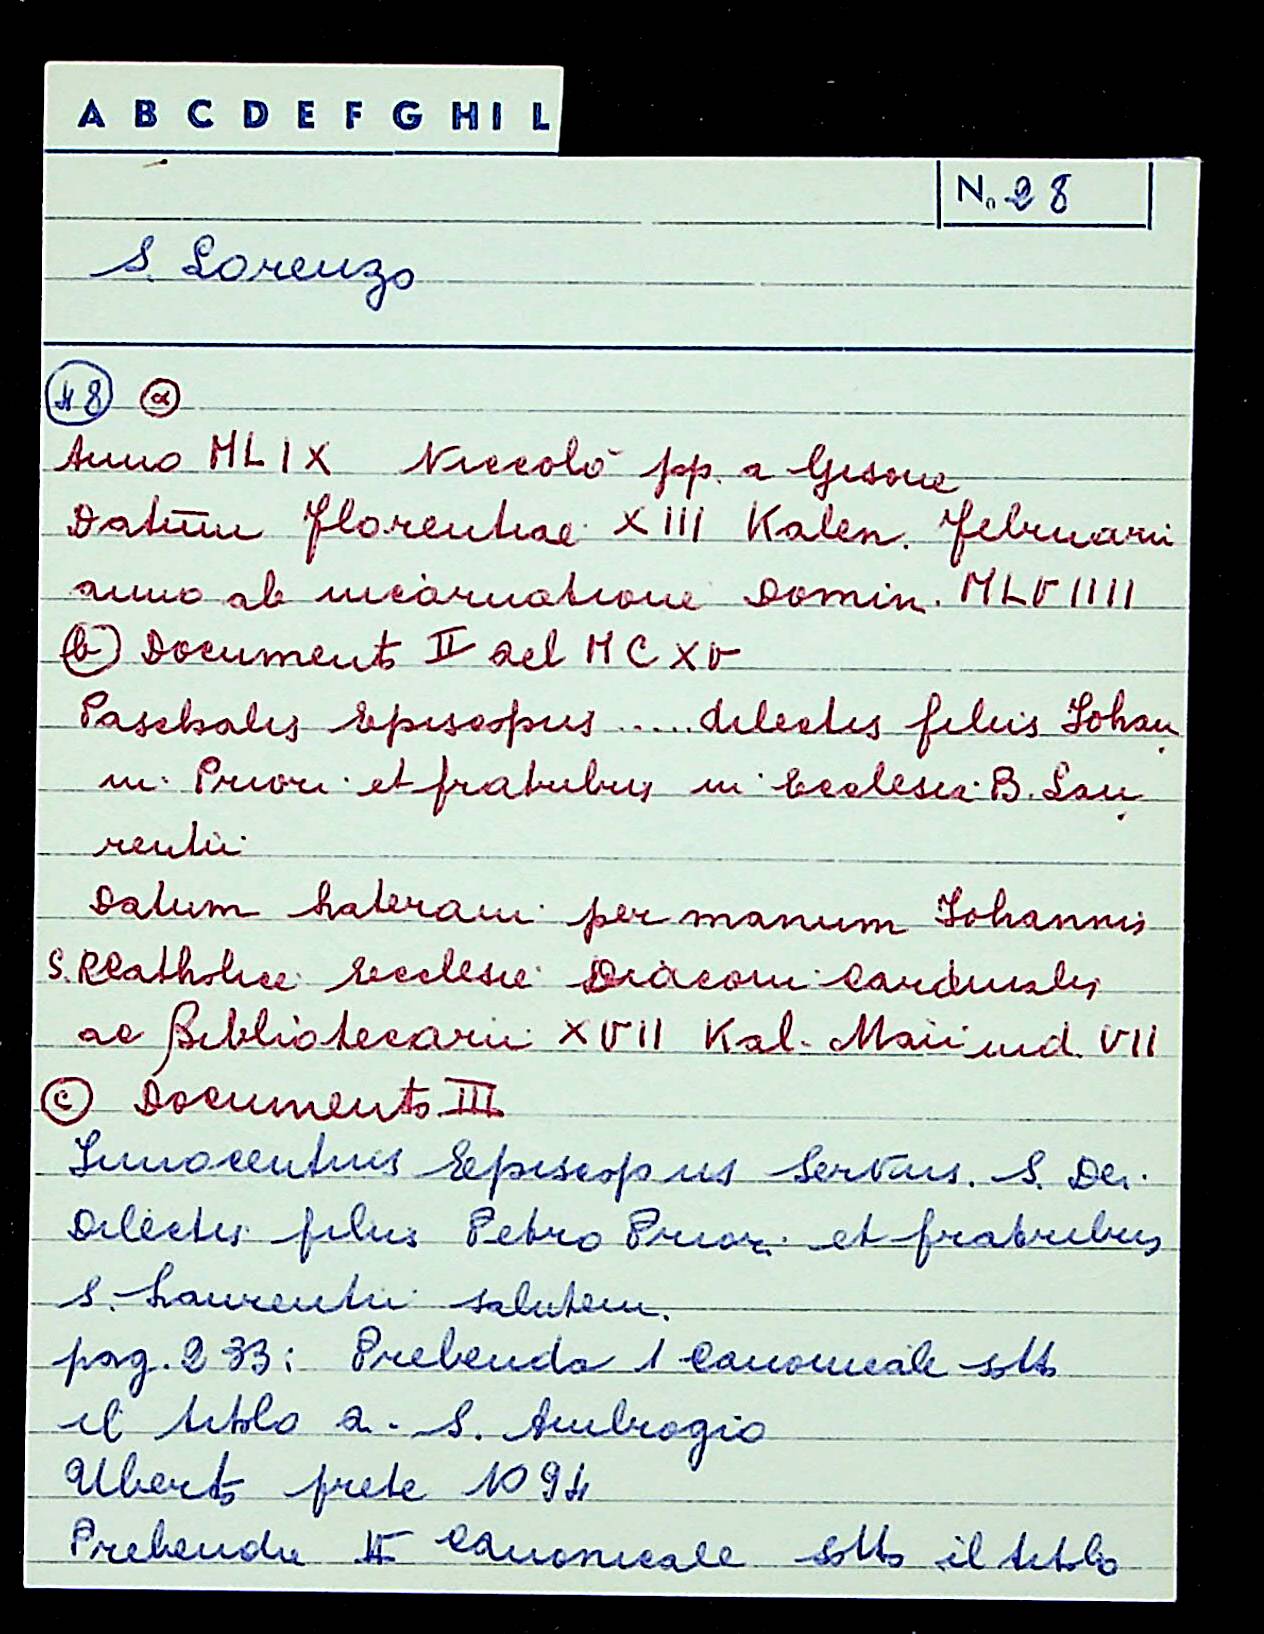 A B C D E F G H I L
N. 28
S. Lorenzo
N 8 a
Anno MLIX Niccolò pp. a Gisone
Datum Florentiae XIII Kalen. Februarii
anno ab incarnatione Domin. MLVIIII
b) Documento II del MCXV
Paschalis Episcopus ..... dilectis filiis Johan
ni Priori et fratribus in Ecclesia B. Lau
rentii
Datum Laterani per manum Johannis
S. R Catholice Ecclesie Diaconi Cardinalis
ac Bibliotecarii XVII Kal. Maii ind. VII
c Documento III
Innocentius Episcopus Servus. S. Dei.
Dilectis filiis Petro Priori et fratribus
S. Laurentii salutem.
pag. 233: Prebenda 1 Canonicale sotto
il titolo a. S. Ambrogio
Uberto prete 1094
Prebenda II Canonicale sotto il titolo